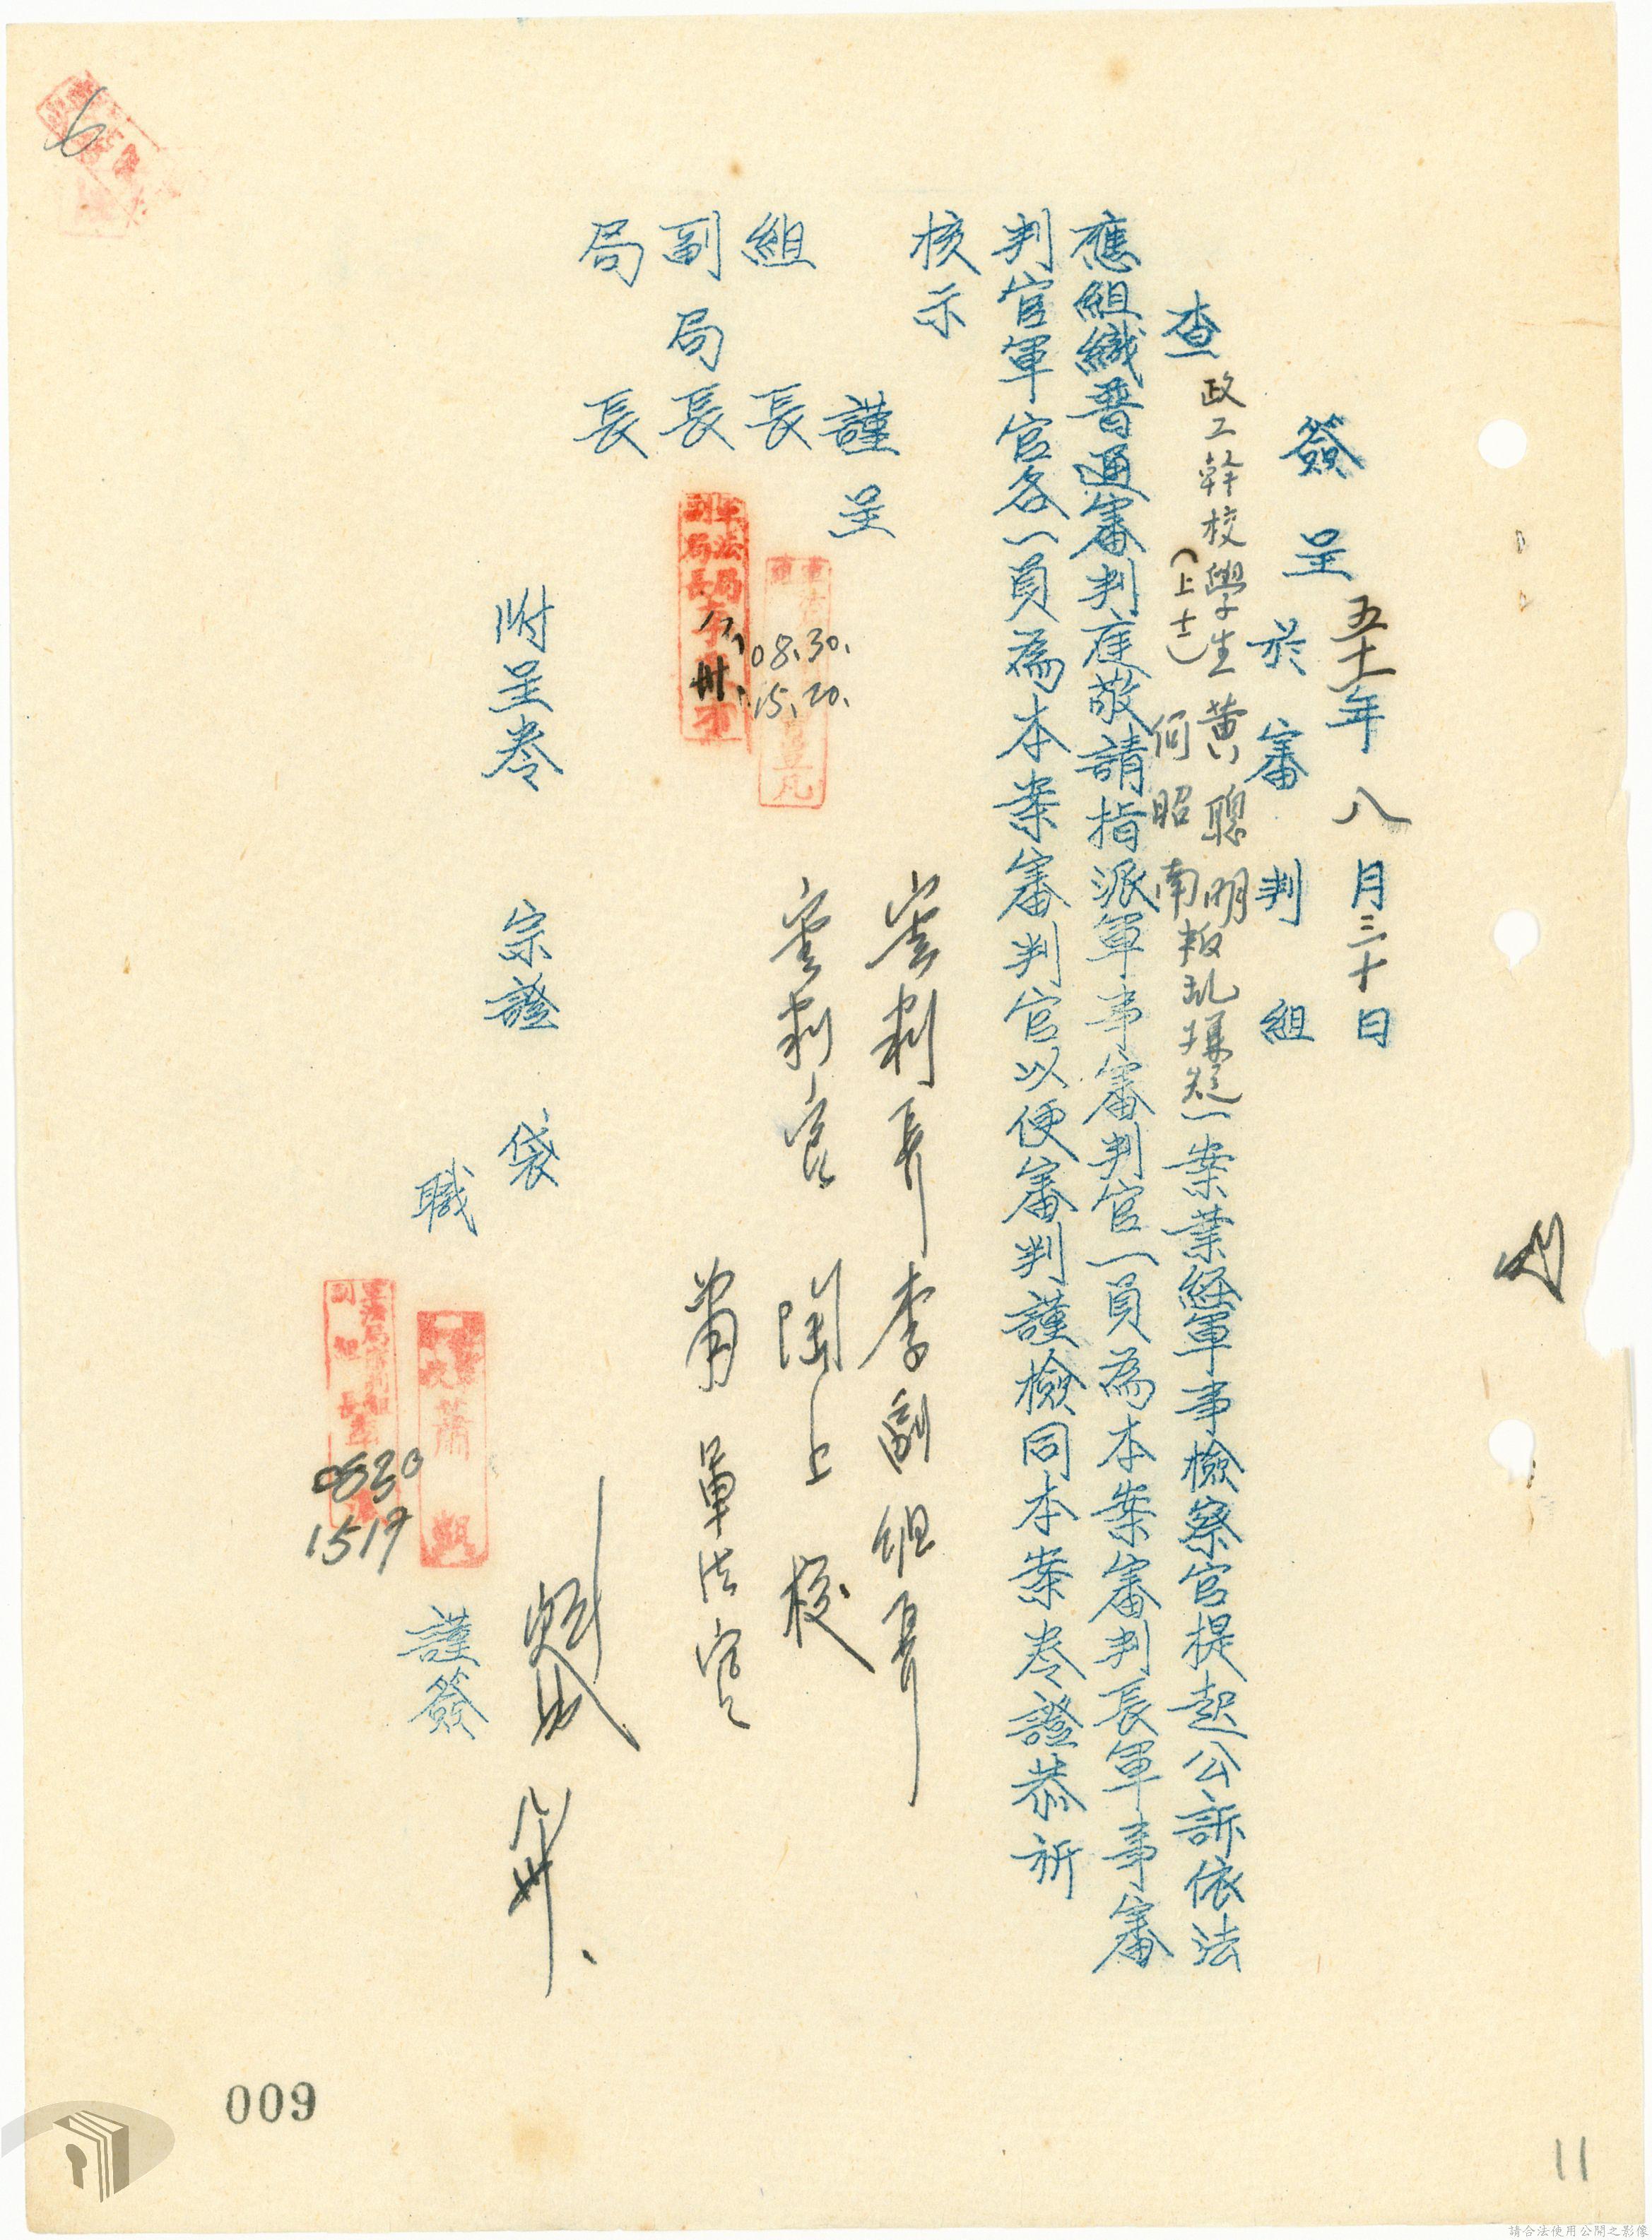 簽呈 五十一年八月三十日
於審判組
查政工幹校學生黃聰明
(上士)何昭南叛乱嫌疑一案業經軍事檢察官提起公訴依法
應組織普通審判庭敬請指派軍事審判官一員為本案審判長軍事審
判官軍官各一員為本案審判官以便審判謹檢同本案卷證恭祈
核示
謹呈
組長
副局長
局長
軍法局副局長
08.30.
15.20.
審判長 李副組長
審判官 陶上校
蕭軍法官
附呈卷宗證袋
職
蕭
0830
1519
謹簽
6
009
11
請合法使用公開之影像